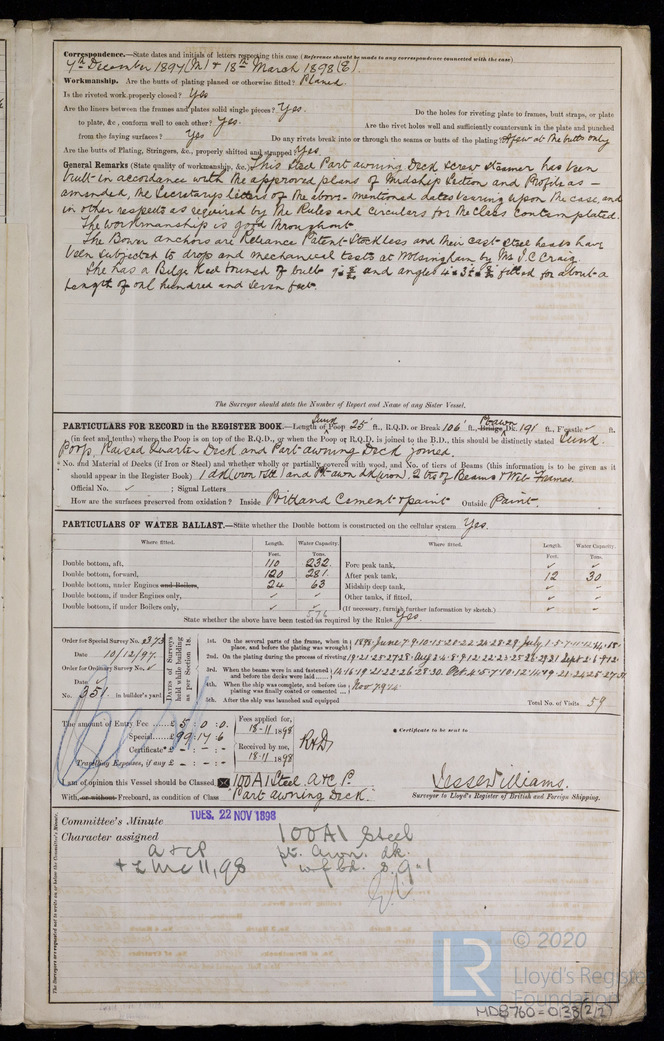 Correspondence.—State dates and initials of letters respecting this case (Reference should be made to any correspondence connected with the case)
7th December 1897 (M) & 18th March 1898 (E).
Workmanship. Are the butts of plating planed or otherwise fitted? Planed
Is the riveted work properly closed? Yes
Are the liners between the frames and plates solid single pieces? Yes. Do the holes for riveting plate to frames, butt straps, or plate
to plate, &c., conform well to each other? Yes. Are the rivet holes well and sufficiently countersunk in the plate and punched
from the faying surfaces? Yes Do any rivets break into or through the seams or butts of the plating? A few at the butts only
Are the butts of Plating, Stringers, &c., properly shifted and strapped? Yes
General Remarks (State quality of workmanship, &c.) This Steel Part awning Deck Screw Steamer has been
built in accordance with the approved plans of Midship Section and Profile as —
amended, the Secretarys letters of the above-mentioned dates bearing upon the case, and
in other respects as required by the Rules and Circulars for the Class Contemplated.
The workmanship is good throughout
The Bower anchors are Reliance Patent Stockless and their cast steel heads have
been subjected to drop and mechanical tests at Wolsingham by Mr J. C. Craig.
She has a Bilge Keel formed of bulb and angles fitted for about a
Length of one hundred and seven feet.
The Surveyor should state the Number of Report and Name of any Sister Vessel.
PARTICULARS FOR RECORD in the REGISTER BOOK.—Length of Sunk Poop 25 ft., R.Q.D. or Break 106 ft., Bridge Pt awn Dk. 191 ft., F'castle ✓ ft.
(in feet and tenths) where the Poop is on top of the R.Q.D., or when the Poop or R.Q.D. is joined to the B.D., this should be distinctly stated Sunk
Poop, Raised Quarter Deck and Part awning Deck joined.
No. and Material of Decks (if Iron or Steel) and whether wholly or partially covered with wood, and No. of tiers of Beams (this information is to be given as it
should appear in the Register Book) 1 dk (iron & stl) and Pt awn dk, iron. 2 trs of Beams & Web Frames.
Official No. ✓ ; Signal Letters
How are the surfaces preserved from oxidation? Inside Portland Cement & paint Outside Paint.
PARTICULARS OF WATER BALLAST.—State whether the Double bottom is constructed on the cellular system. Yes.
Where fitted. Length. Water Capacity. Where fitted. Length. Water Capacity.
Feet. Tons. Feet. Tons.
Double bottom, aft, 110 232 Fore peak tank, ✓ ✓
Double bottom, forward, 120 281 After peak tank, 12 30
Double bottom, under Engines and Boilers, 24 63 Midship deep tank, ✓ ✓
Double bottom, if under Engines only, ✓ ✓ Other tanks, if fitted, ✓ ✓
Double bottom, if under Boilers only, ✓ ✓ (If necessary, furnish further information by sketch.)
576
State whether the above have been tested as required by the Rules Yes.
Order for Special Survey No. 2373
Date 10/12/97.
Order for Ordinary Survey No. ✓
Date ✓
No. 351 in builder's yard
DATES of Surveys held while building as per Section 18.
1st. On the several parts of the frame, when in place, and before the plating was wrought 1898 June 7·9·10·15·20·22·24·28·29 July 1·5·7·11·12·14·15·
2nd. On the plating during the process of riveting 19·21·25·27·28· Aug 2·4·8·9·12·22·23·25·26·29·31 Sept 2·6·9·12·
3rd. When the beams were in and fastened and before the decks were laid 14·16·19·21·22·26·28·30. Oct 4·5·7·10·12·14·19·21·24·25·27·31
4th. When the ship was complete, and before the plating was finally coated or cemented Nov 7·9·14
5th. After the ship was launched and equipped Total No. of Visits 59
The amount of Entry Fee £5 : 0 : 0.
Special £99 : 17 : 6
Certificate £ - : - : -
Travelling Expenses, if any £ - : - : -
Fees applied for,
18-11-1898
Received by me,
18-11-1898
Certificate to be sent to
I am of opinion this Vessel should be Classed 100A1 Steel. A & C P.
With, or without Freeboard, as condition of Class Part awning Deck.
Jesse Williams.
Surveyor to Lloyd's Register of British and Foreign Shipping.
Committee's Minute TUES. 22 NOV 1898
Character assigned 100A1 Steel
A & CP pt. Awn. dk.
+ LMC 11,98 w f bd.
The Surveyors are requested not to write on or below the Committee's Minute.
LR © 2020
Lloyd's Register
Foundation
MDS760-0133(2/2)